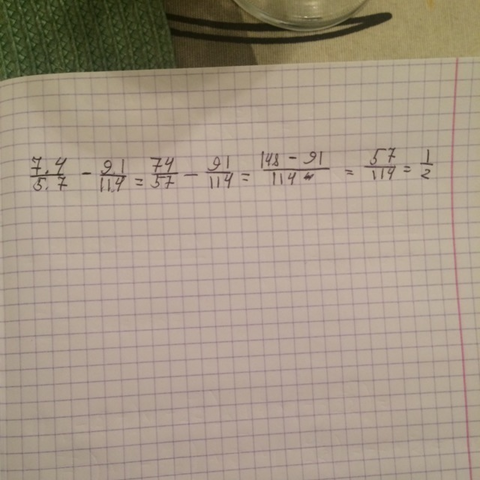 7.4/5.7 - 9.1/11.4 = 74/57 - 91/114 = 148 - 91/114 = 57/114 = 1/2